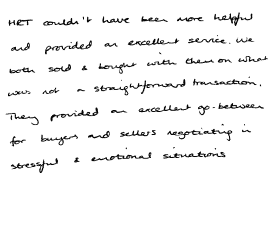 HRT couldn't have been more helpful
and provided an excellent service. We
both sold & bought with them on what
was not a straightforward transaction.
They provided an excellent go-between
for buyers and sellers negotiating in
stressful & emotional situations